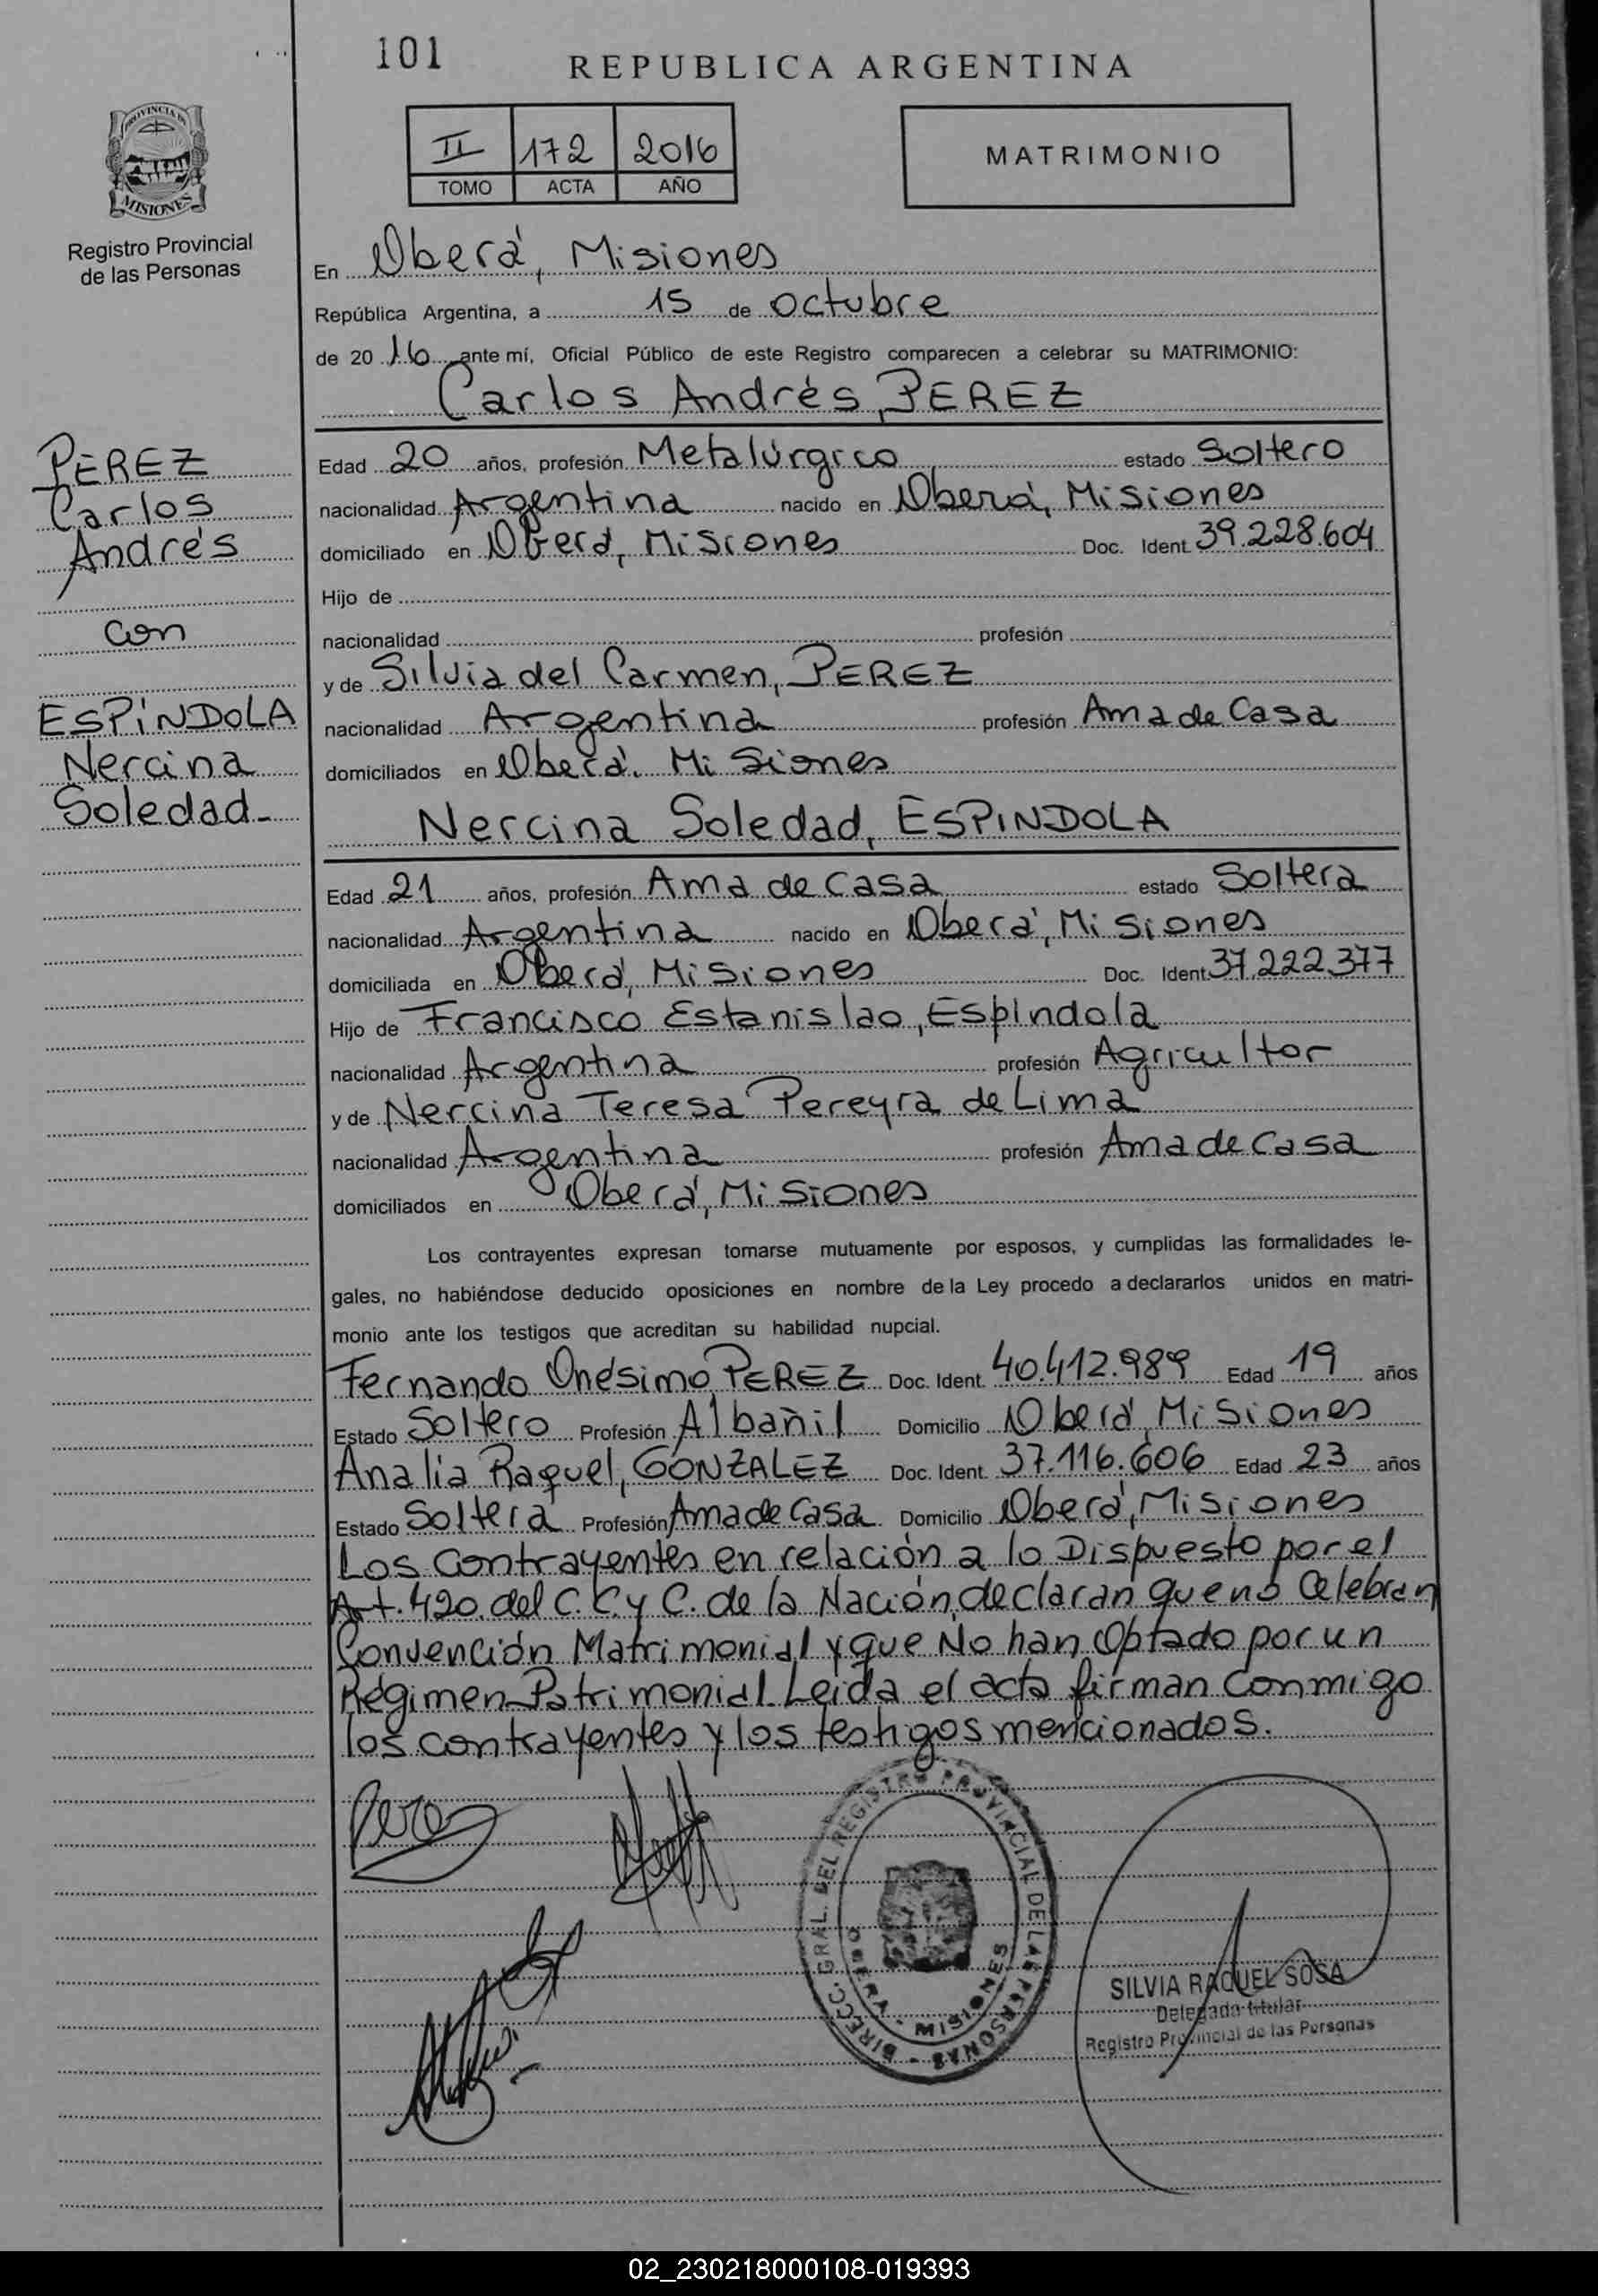 101
REPUBLICA ARGENTINA
II 172 2016
TOMO ACTA AÑO
MATRIMONIO
PROVINCIA DE
MISIONES
Registro Provincial
de las Personas
En Oberá, Misiones
República Argentina, a 15 de octubre
de 2016 ante mí, Oficial Público de este Registro comparecen a celebrar su MATRIMONIO:
Carlos Andrés, PEREZ
PEREZ
Carlos
Andrés
con
ESPINDOLA
Nercina
Soledad-
Edad 20 años, profesión Metalúrgico estado Soltero
nacionalidad Argentina nacido en Oberá, Misiones
domiciliado en Oberá, Misiones Doc. Ident. 39.228.604
Hijo de
nacionalidad profesión
y de Silvia del Carmen, PEREZ
nacionalidad Argentina profesión Ama de Casa
domiciliados en Oberá. Misiones
Nercina Soledad, ESPINDOLA
Edad 21 años, profesión Ama de casa estado Soltera
nacionalidad Argentina nacido en Oberá, Misiones
domiciliada en Oberá, Misiones Doc. Ident. 37.222.377
Hijo de Francisco Estanislao, Espindola
nacionalidad Argentina profesión Agricultor
y de Nercina Teresa Pereyra de Lima
nacionalidad Argentina profesión Ama de casa
domiciliados en Oberá, Misiones
Los contrayentes expresan tomarse mutuamente por esposos, y cumplidas las formalidades le-
gales, no habiéndose deducido oposiciones en nombre de la Ley procedo a declararlos unidos en matri-
monio ante los testigos que acreditan su habilidad nupcial.
Fernando Onésimo, PEREZ Doc. Ident. 40.412.989 Edad 19 años
Estado Soltero Profesión Albañil Domicilio Oberá, Misiones
Analia Raquel, GONZALEZ Doc. Ident. 37.116.606 Edad 23 años
Estado Soltera Profesión Ama de Casa Domicilio Oberá, Misiones
Los Contrayentes en relación a lo Dispuesto por el
Art. 420 del C. C. y C. de la Nación, declaran que no Celebran
Convención Matrimonial y que No han Optado por un
Régimen Patrimonial. Leida el acta firman Conmigo
los contrayentes y los testigos mencionados.
Perez
DIRECC. GRAL. DEL REGISTRO PROVINCIAL DE LAS PERSONAS
OBERA - MISIONES
SILVIA RAQUEL SOSA
Delegada titular
Registro Provincial de las Personas
02_230218000108-019393